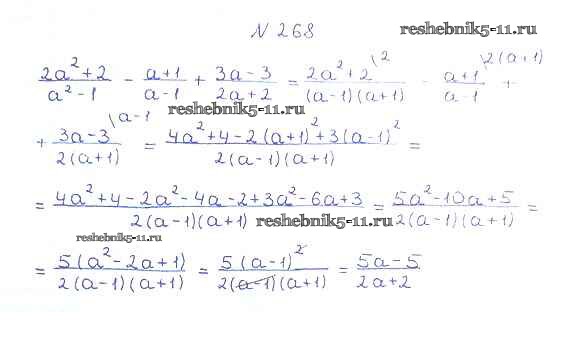 N 268 reshebnik5-11.ru
(2a²+2)/(a²-1) - (a+1)/(a-1) + (3a-3)/(2a+2) = (2a²+2)/((a-1)(a+1)) \2 - (a+1)/(a-1) \2(a+1) +
reshebnik5-11.ru
+ (3a-3)/(2(a+1)) \a-1 = (4a²+4-2(a+1)²+3(a-1)²)/(2(a-1)(a+1)) =
= (4a²+4-2a²-4a-2+3a²-6a+3)/(2(a-1)(a+1)) = (5a²-10a+5)/(2(a-1)(a+1)) =
reshebnik5-11.ru
reshebnik5-11.ru
= (5(a²-2a+1))/(2(a-1)(a+1)) = (5(a-1)²)/(2(a-1)(a+1)) = (5a-5)/(2a+2)